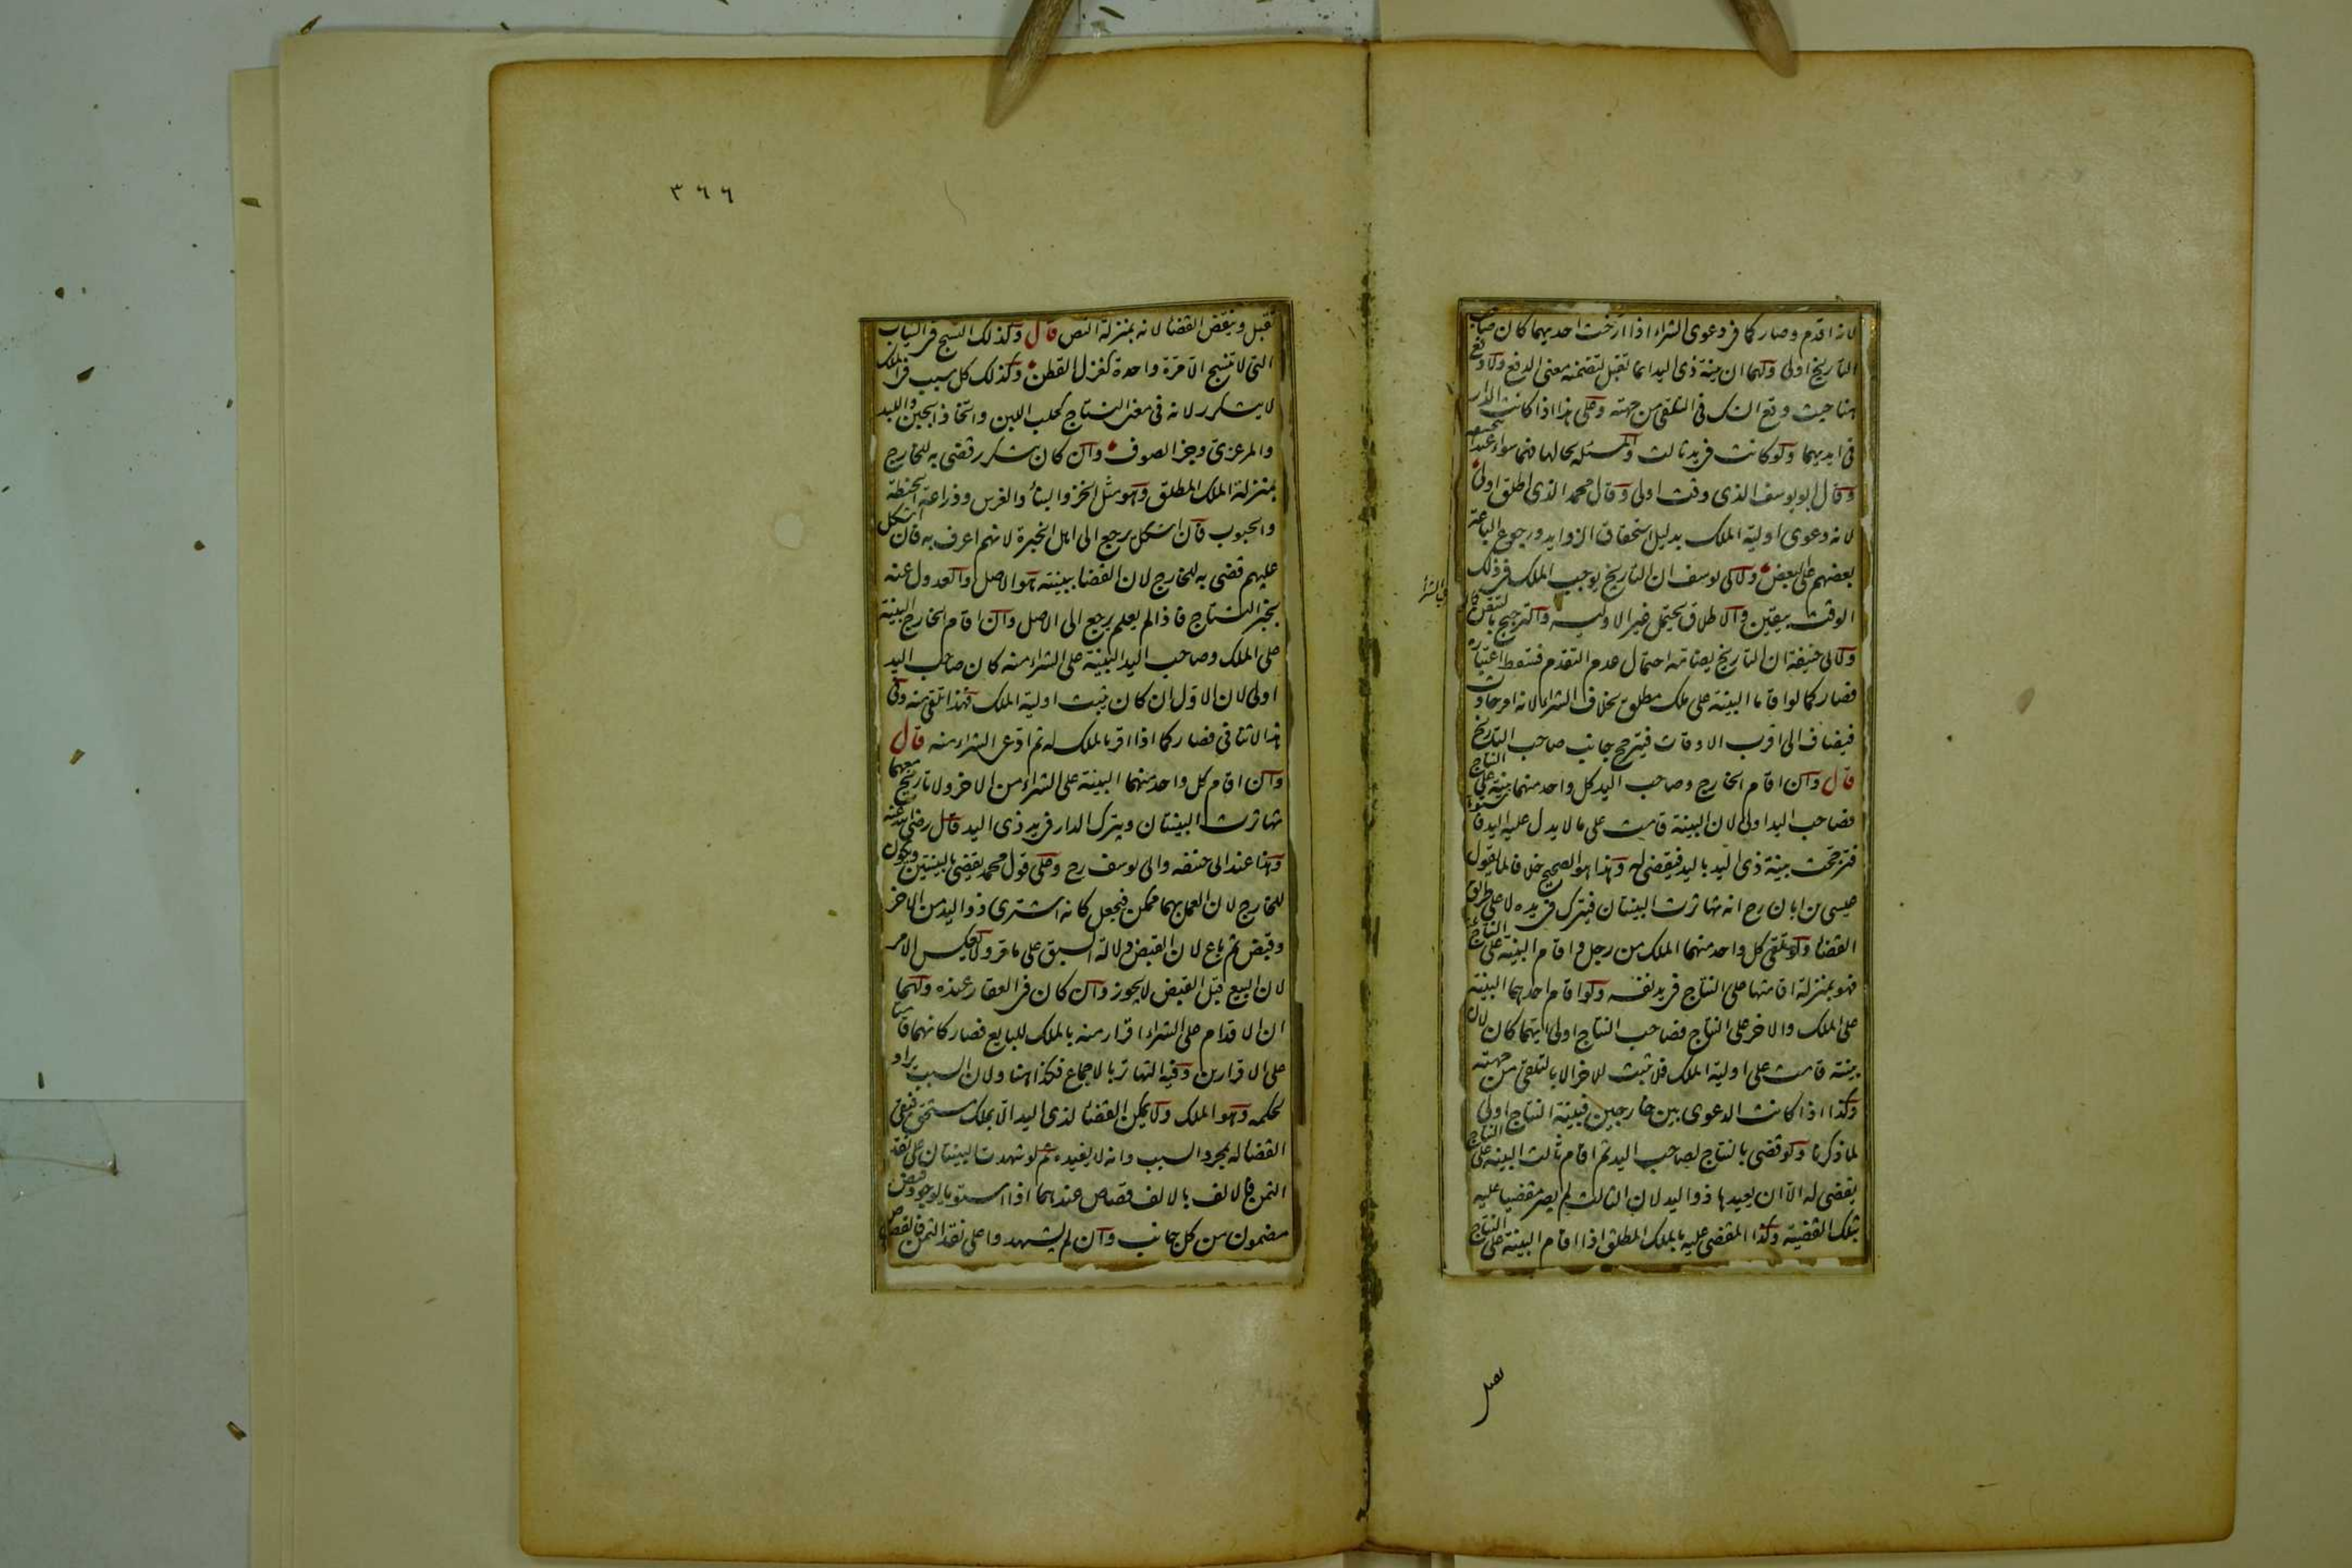 لانه اقدم وصار كما فى دعوى الشراء اذا ارخت احديهما كان صاحب
التاريخ اولى ولهما ان بينة ذى اليد انما تقبل لتضمنه معنى الدفع ولا دفع
هنا حيث وقع الشك فى التلقى من جهته وعلى هذا اذا كانت الدار
فى ايديهما ولو كانت فى يد ثالث والمسئلة بحالها فهما سواء عند ابى حنيفة
وقال ابو يوسف الذى وقت اولى وقال محمد الذى اطلق اولى
لانه دعوى اولية الملك بدليل استحقاق الزوايد ورجوع الباعة
بعضهم على البعض ولابى يوسف ان التاريخ يوجب الملك فى ذلك
الوقت بيقين والاطلاق يحتمل غير الاولية والترجيح بالتيقن كما
فى الشراء
ولابى حنيفة ان التاريخ يضامه احتمال عدم التقدم فسقط اعتباره
فصار كما لو اقاما البينة على ملك مطلق بخلاف الشراء لانه امر حادث
فيضاف الى اقرب الاوقات فيترجح جانب صاحب التاريخ
قال وان اقام الخارج وصاحب اليد كل واحد منهما بينة على النتاج
فصاحب اليد اولى لان البينة قامت على ما لا يدل عليه اليد فاستويا
فترجحت بينة ذى اليد باليد فيقضى له وهذا هو الصحيح خلافا لما يقول
عيسى بن ابان رح انه تهاترت البينتان فيترك فى يده لا على طريق
القضاء ولو تلقى كل واحد منهما الملك من رجل واقام البينة على النتاج
فهو بمنزلة اقامتها على النتاج فى يد نفسه ولو اقام احدهما البينة
على الملك والاخر على النتاج فصاحب النتاج اولى ايهما كان لان
بينته قامت على اولية الملك فلا يثبت للاخر الا بالتلقى من جهته
وكذا اذا كانت الدعوى بين خارجين فبينة النتاج اولى
لما ذكرنا ولو قضى بالنتاج لصاحب اليد ثم اقام ثالث البينة على النتاج
يقضى له الا ان يعيدها ذو اليد لان الثالث لم يصر مقضيا عليه
بتلك القضية وكذا المقضى عليه بالملك المطلق اذا اقام البينة على النتاج
٣٦٦
تقبل وينقض القضاء لانه بمنزلة النص قال وكذلك النسج فى الثياب
التى لا تنسج الا مرة واحدة كغزل القطن وكذلك كل سبب فى الملك
لا يتكرر لانه فى معنى النتاج كحلب اللبن واتخاذ الجبن واللبد
والمرعزى وجز الصوف وان كان يتكرر قضى به للخارج
بمنزلة الملك المطلق وهو مثل الخز والبناء والغرس وزراعة الحنطة
والحبوب فان اشكل يرجع الى اهل الخبرة لانهم اعرف به فان اشكل
عليهم قضى به للخارج لان القضاء ببينته هو الاصل والعدول عنه
بخبر النتاج فاذا لم يعلم يرجع الى الاصل وان اقام الخارج البينة
على الملك وصاحب اليد البينة على الشراء منه كان صاحب اليد
اولى لان الاول ان كان يثبت اولية الملك فهذا تلقى منه وفى
هذا لا تنافى فصار كما اذا اقر بالملك له ثم ادعى الشراء منه قال
وان اقام كل واحد منهما البينة على الشراء من الاخر ولا تاريخ معهما
تهاترت البينتان ويترك الدار فى يد ذى اليد قال رضى الله عنه
وهذا عند ابى حنيفه وابى يوسف رح وعلى قول محمد يقضى بالبينتين ويكون
للخارج لان العمل بهما ممكن فيجعل كانه اشترى ذو اليد من الاخر
وقبض ثم باع لان القبض دلالة السبق على ما مر ولا يعكس الامر
لان البيع قبل القبض لا يجوز وان كان فى العقار عنده ولهما
ان الاقدام على الشراء اقرار منه بالملك للبايع فصار كانهما قامتا
على الاقرارين وفيه التهاتر بالاجماع فكذا هنا ولان السبب يراد
لحكمه وهو الملك ولا يمكن القضاء لذى اليد الا بملك مستحق فبقى
القضاء له بمجرد السبب وانه لا يفيده ثم لو شهدت البينتان على نقد
الثمن فالالف بالالف قصاص عندهما اذا استويا لوجود قبض
مضمون من كل جانب وان لم يشهدوا على نقد الثمن فالقصاص